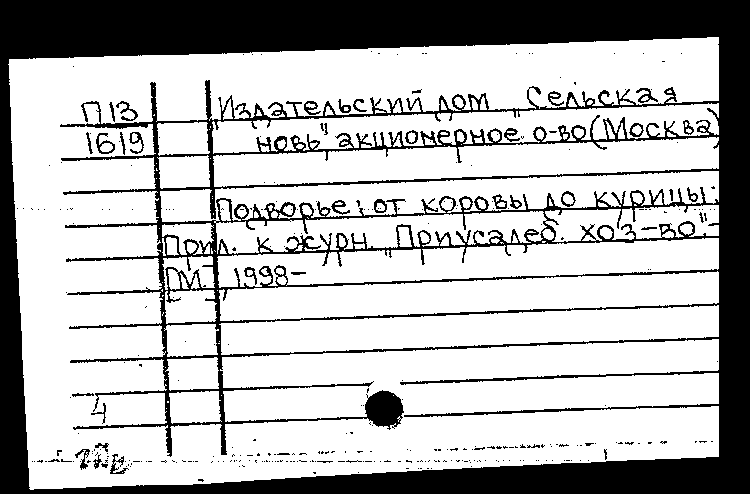 П13 „Издательский дом „Сельская
1619 новь", акционерное о-во (Москва)
Подворье: от коровы до курицы:
Прил. к журн. „Приусадеб. хоз-во".-
[М.], 1998-
4